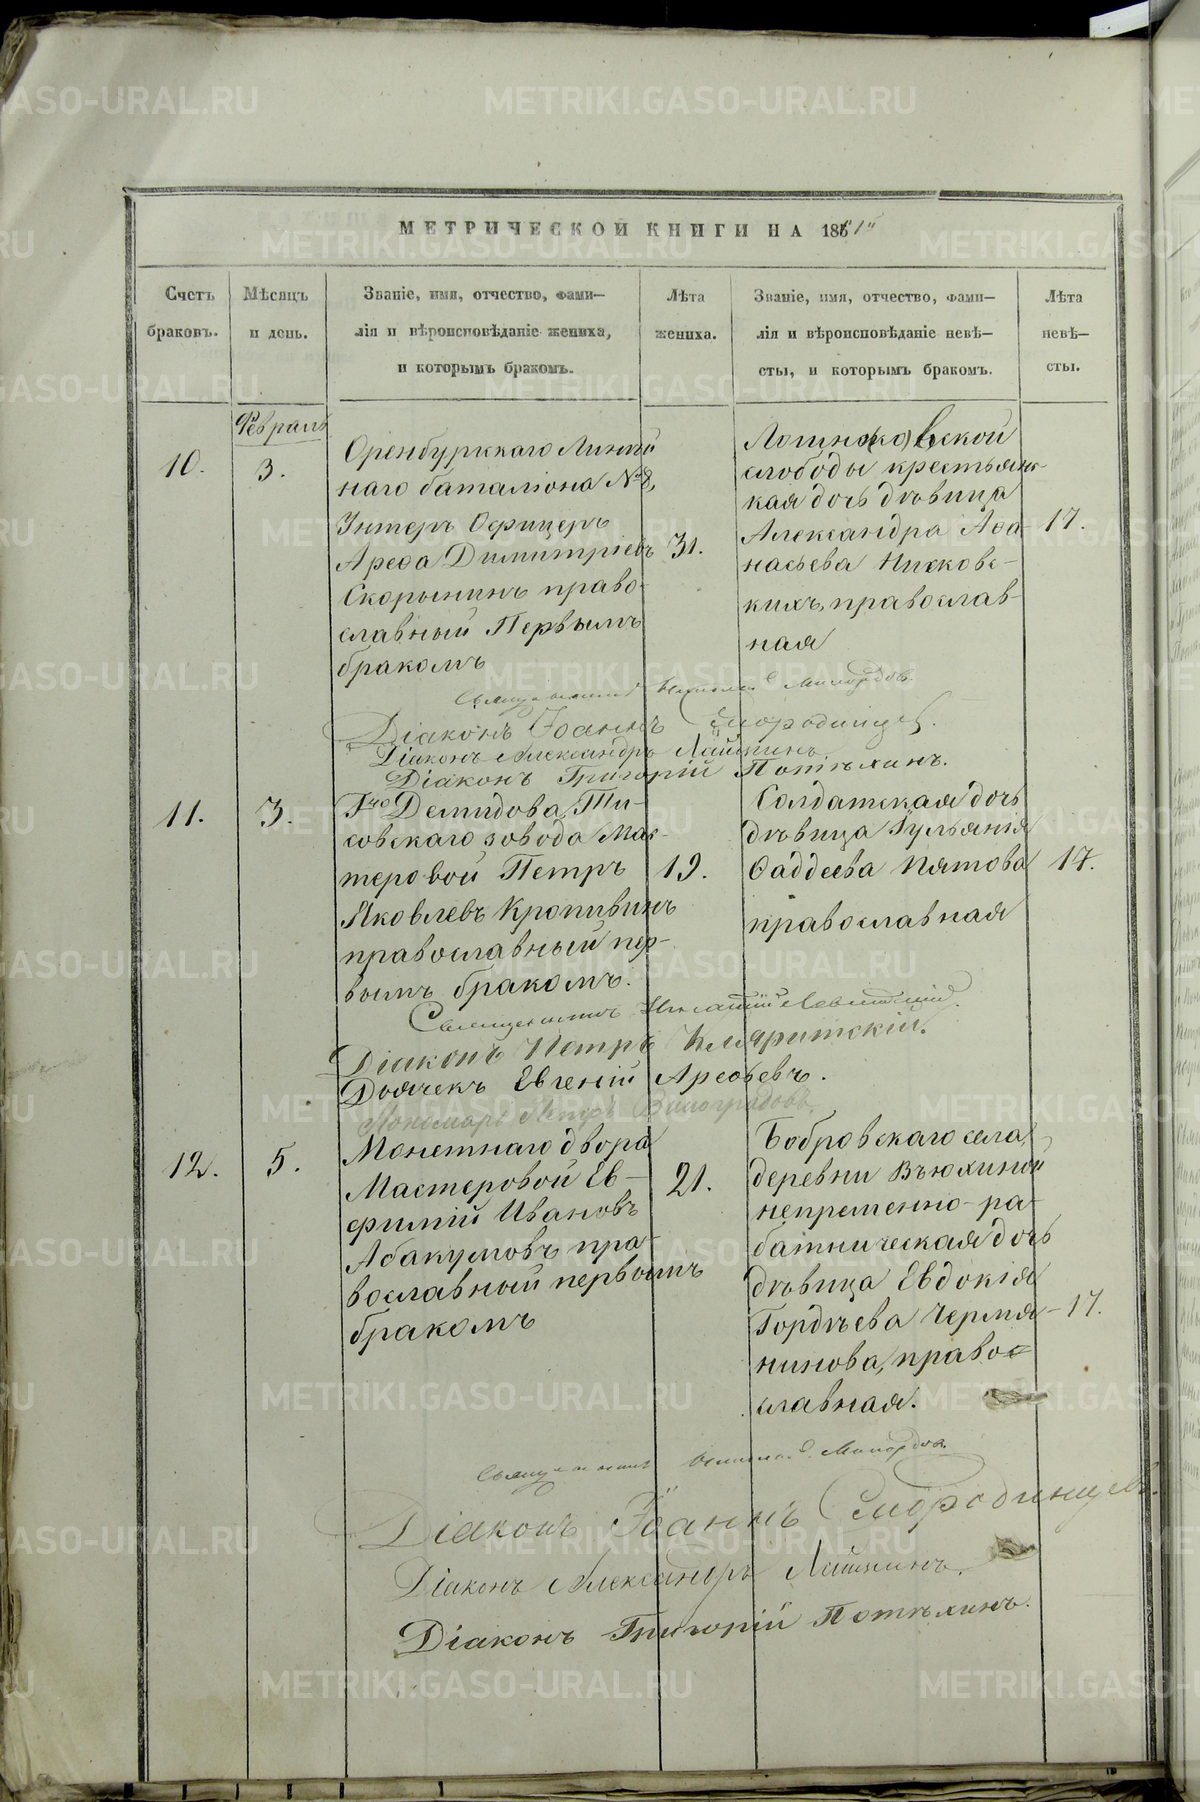 МЕТРИЧЕСКОЙ КНИГИ НА 18
Счетъ браковъ.
Мѣсяцъ и день.
Званіе, имя, отчество, фами-
лія и вѣроисповѣданіе жениха,
и которымъ бракомъ.
Лѣта жениха.
Званіе, имя, отчество, фами-
лія и вѣроисповѣданіе невѣ-
сты, и которымъ бракомъ.
Лѣта невѣ-
сты.
Февраль
10.
3.
Оренбургскаго Линей
наго баталіона № 8,
Унтеръ Офицеръ
Арефа Димитріевъ
Скорынинъ право-
славный Первымъ
бракомъ
31.
слободы крестьянс-
кая дочь дѣвица
Александра Афа-
насьева
православ-
ная
17.
Діаконъ Іоаннъ Смородинцев.
Діаконъ Александръ Ляпинъ
Діаконъ Григорій Потѣхинъ.
11.
3.
Гна Демидова Ти-
совскаго завода Мас-
теровой Петръ
Яковлевъ Кропивинъ
православный пер-
вымъ бракомъ.
19.
Солдатская дочь
дѣвица Іульянія
Фаддеева Пятова
православная
17.
Священникъ
Діаконъ Петръ
Дьячекъ Евгеній Арефьевъ.
Пономарь Петръ Виноградовъ
12.
5.
Монетнаго двора
Мастеровой Ев-
фимій Ивановъ
Абакумовъ пра-
вославный первымъ
бракомъ
21.
Бобровскаго села,
деревни Вьюхиной
непременно-ра-
батническая дочь
дѣвица Евдокія
Гордѣева Чермя-
нинова, право
славная.
17.
Діаконъ Іоаннъ Смородинцевъ.
Діаконъ Александръ Ляпинъ.
Діаконъ Григорій Потѣхинъ.
METRIKI.GASO-URAL.RU